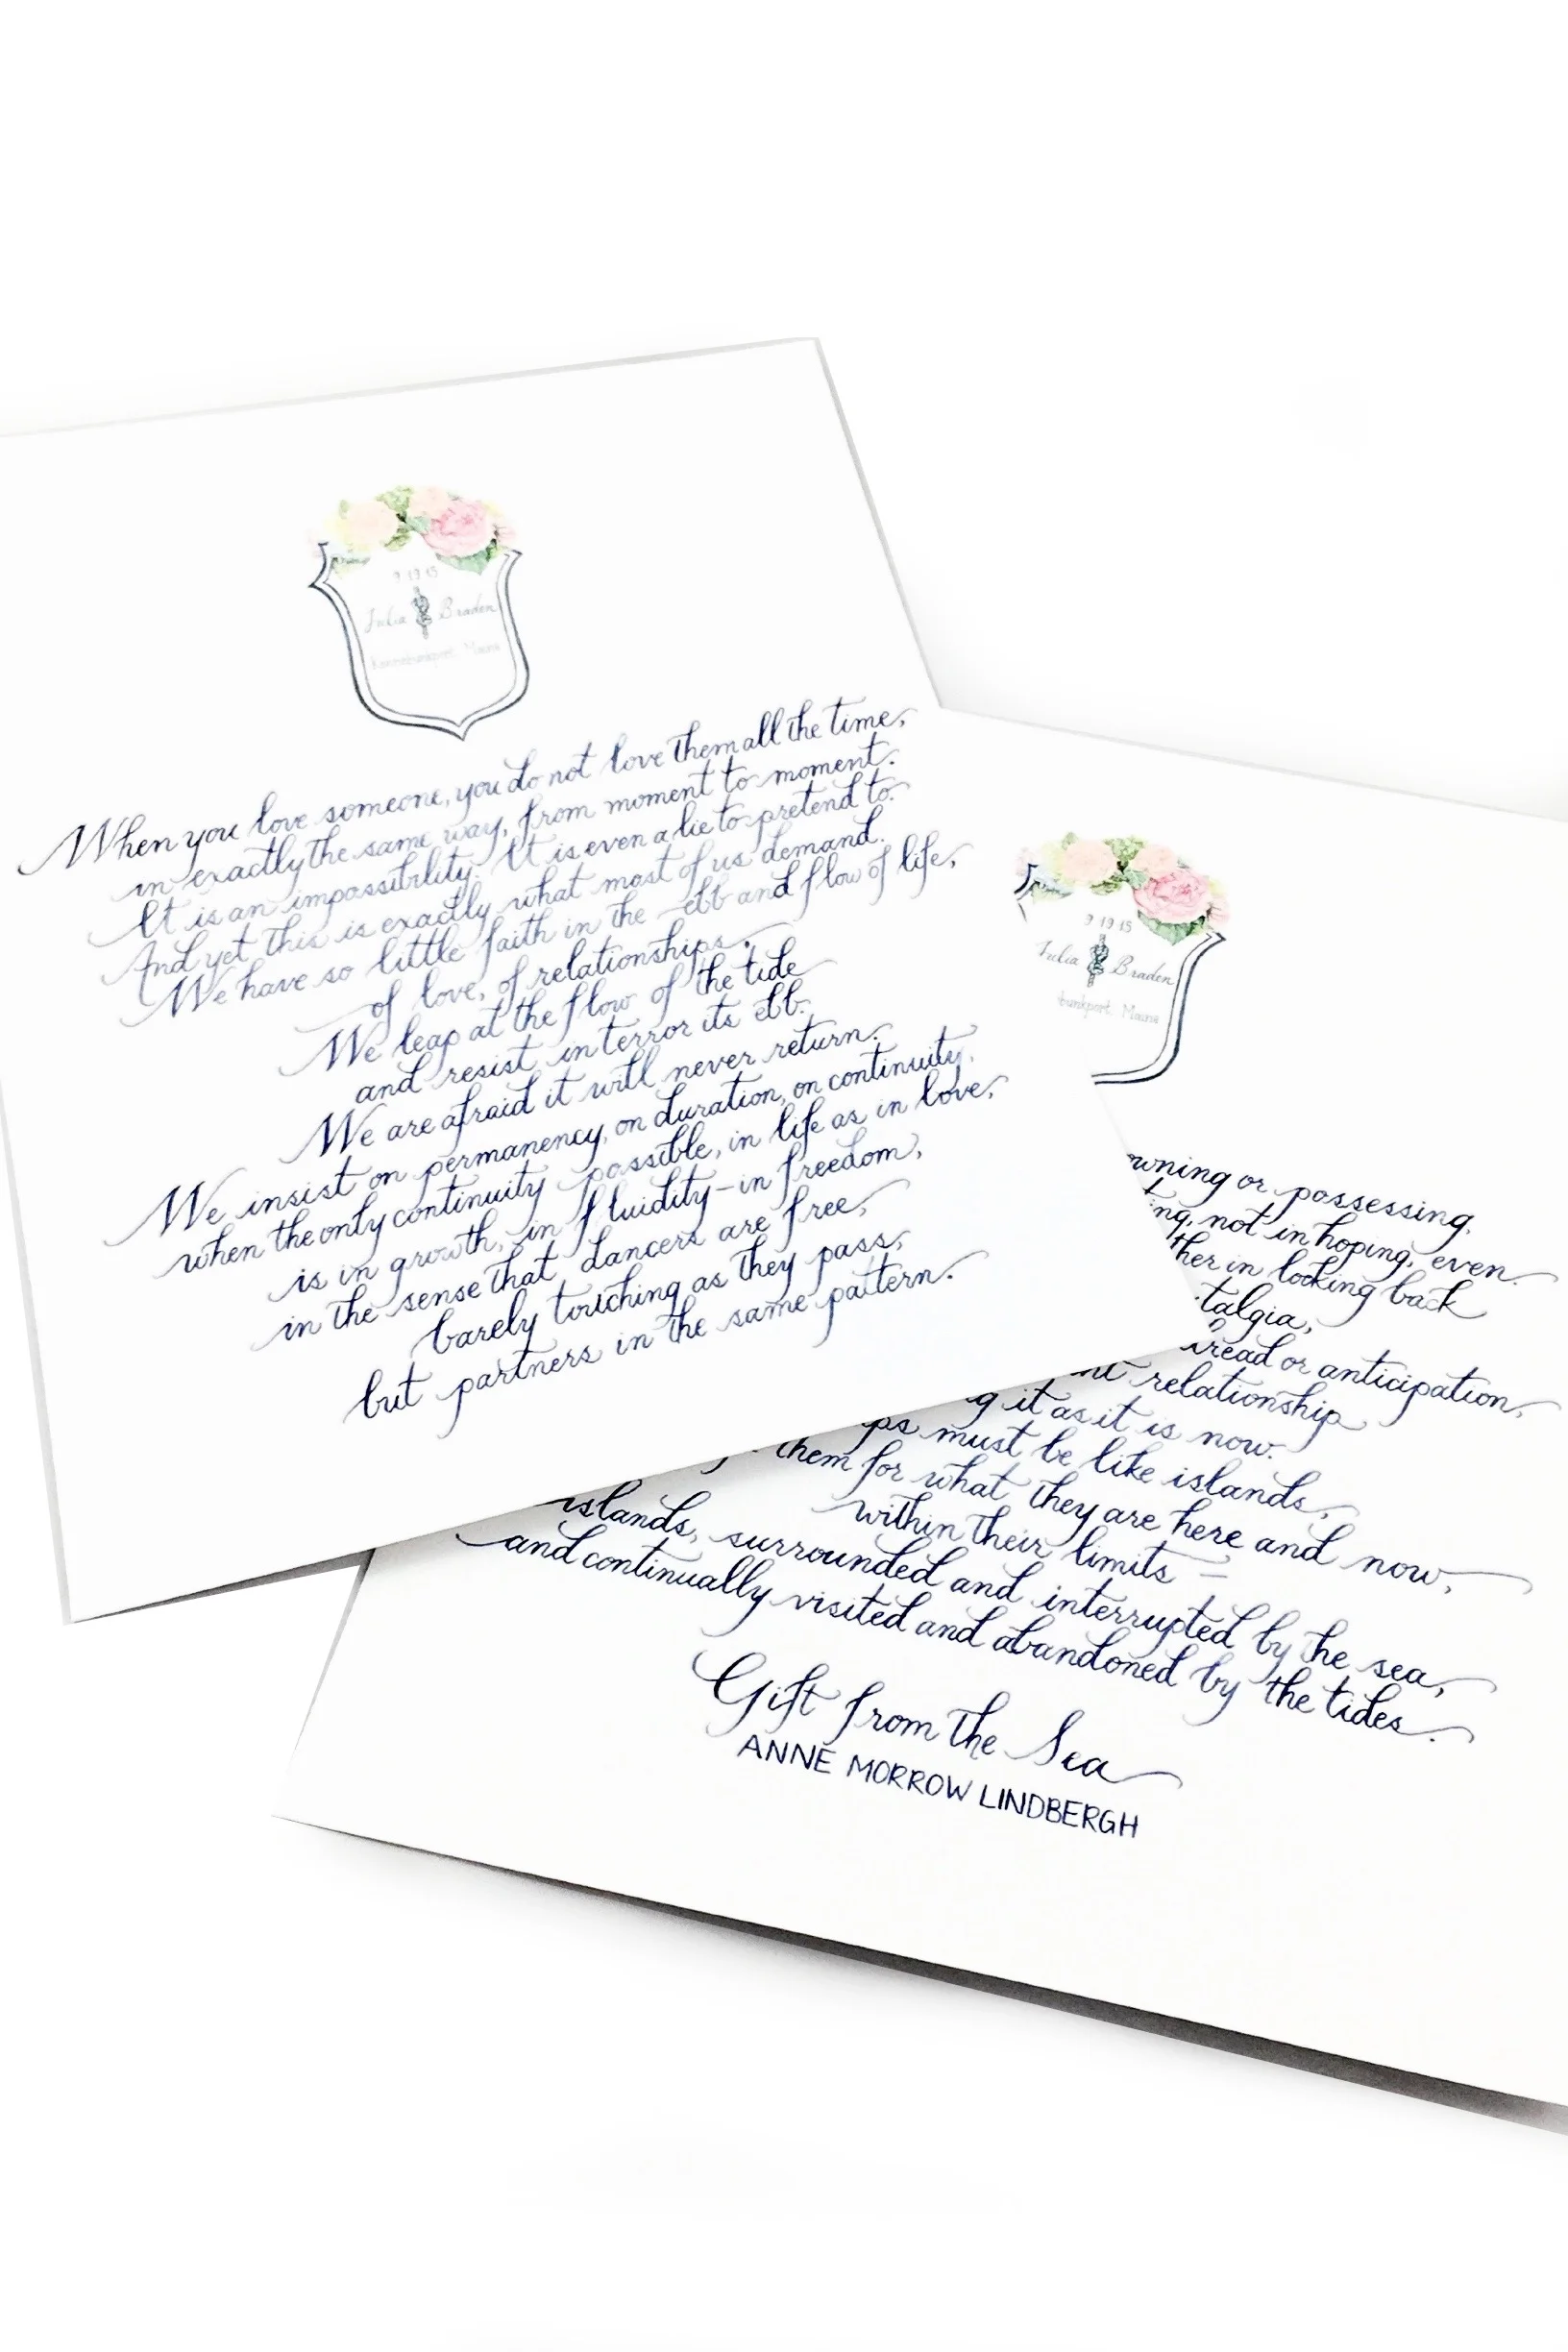 9 19 15
Julia Braden
Kennebunkport, Maine
When you love someone, you do not love them all the time,
in exactly the same way, from moment to moment.
It is an impossibility. It is even a lie to pretend to.
And yet this is exactly what most of us demand.
We have so little faith in the ebb and flow of life,
of love, of relationships.
We leap at the flow of the tide
and resist in terror its ebb.
We are afraid it will never return.
We insist on permanency, on duration, on continuity,
when the only continuity possible, in life as in love,
is in growth, in fluidity - in freedom,
in the sense that dancers are free,
barely touching as they pass,
but partners in the same pattern.
9 19 15
Julia Braden
bunkport, Maine
owning or possessing,
ing, not in hoping, even.
ther in looking back
talgia,
dread or anticipation,
nt relationship
g it as it is now.
ps must be like islands,
them for what they are here and now,
within their limits -
islands, surrounded and interrupted by the sea,
and continually visited and abandoned by the tides.
Gift from the Sea
ANNE MORROW LINDBERGH